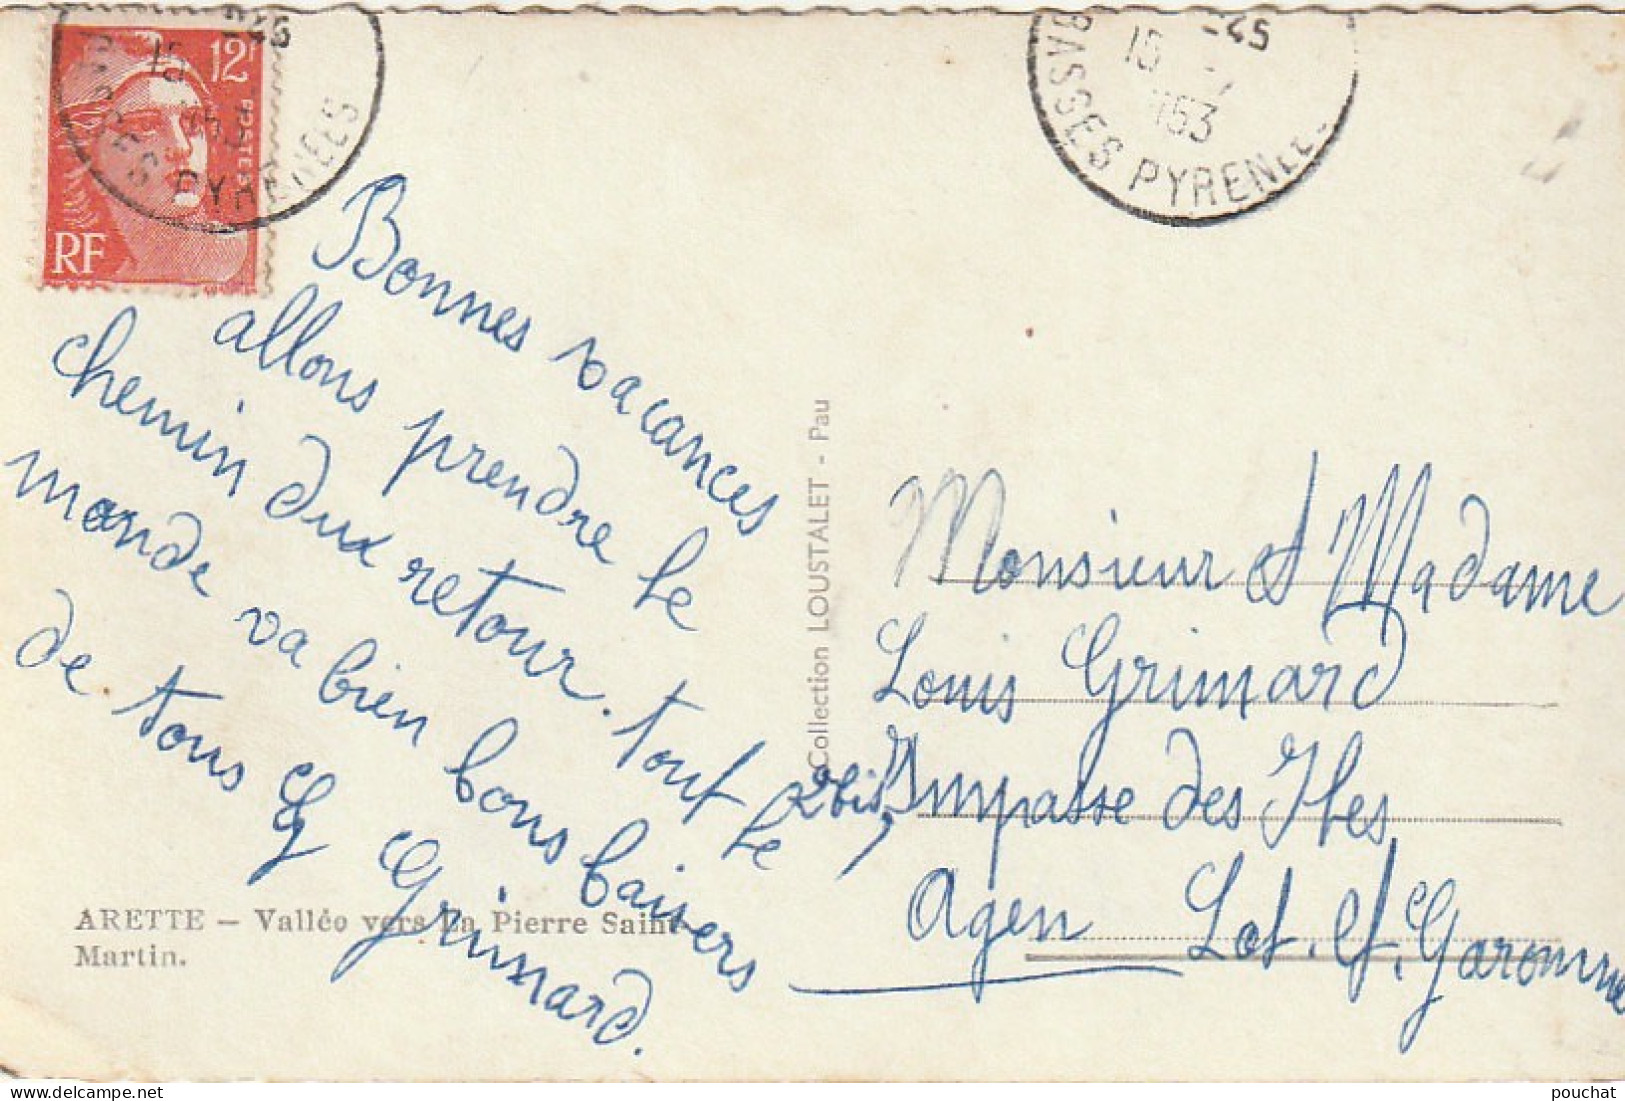 12F
POSTES
RF
15
1953
BASSES PYRENEES
15
1953
BASSES PYRENEES
Bonnes vacances
allons prendre le
chemin dux retour. tout le
monde va bien bons baisers
de tous
G Grimard.
ARETTE — Vallée vers La Pierre Saint-
Martin.
Collection LOUSTALET - Pau
Monsieur et Madame
Louis Grimard
2bis, Impasse des Ifles
Agen Lot. et. Garonne
pouchat